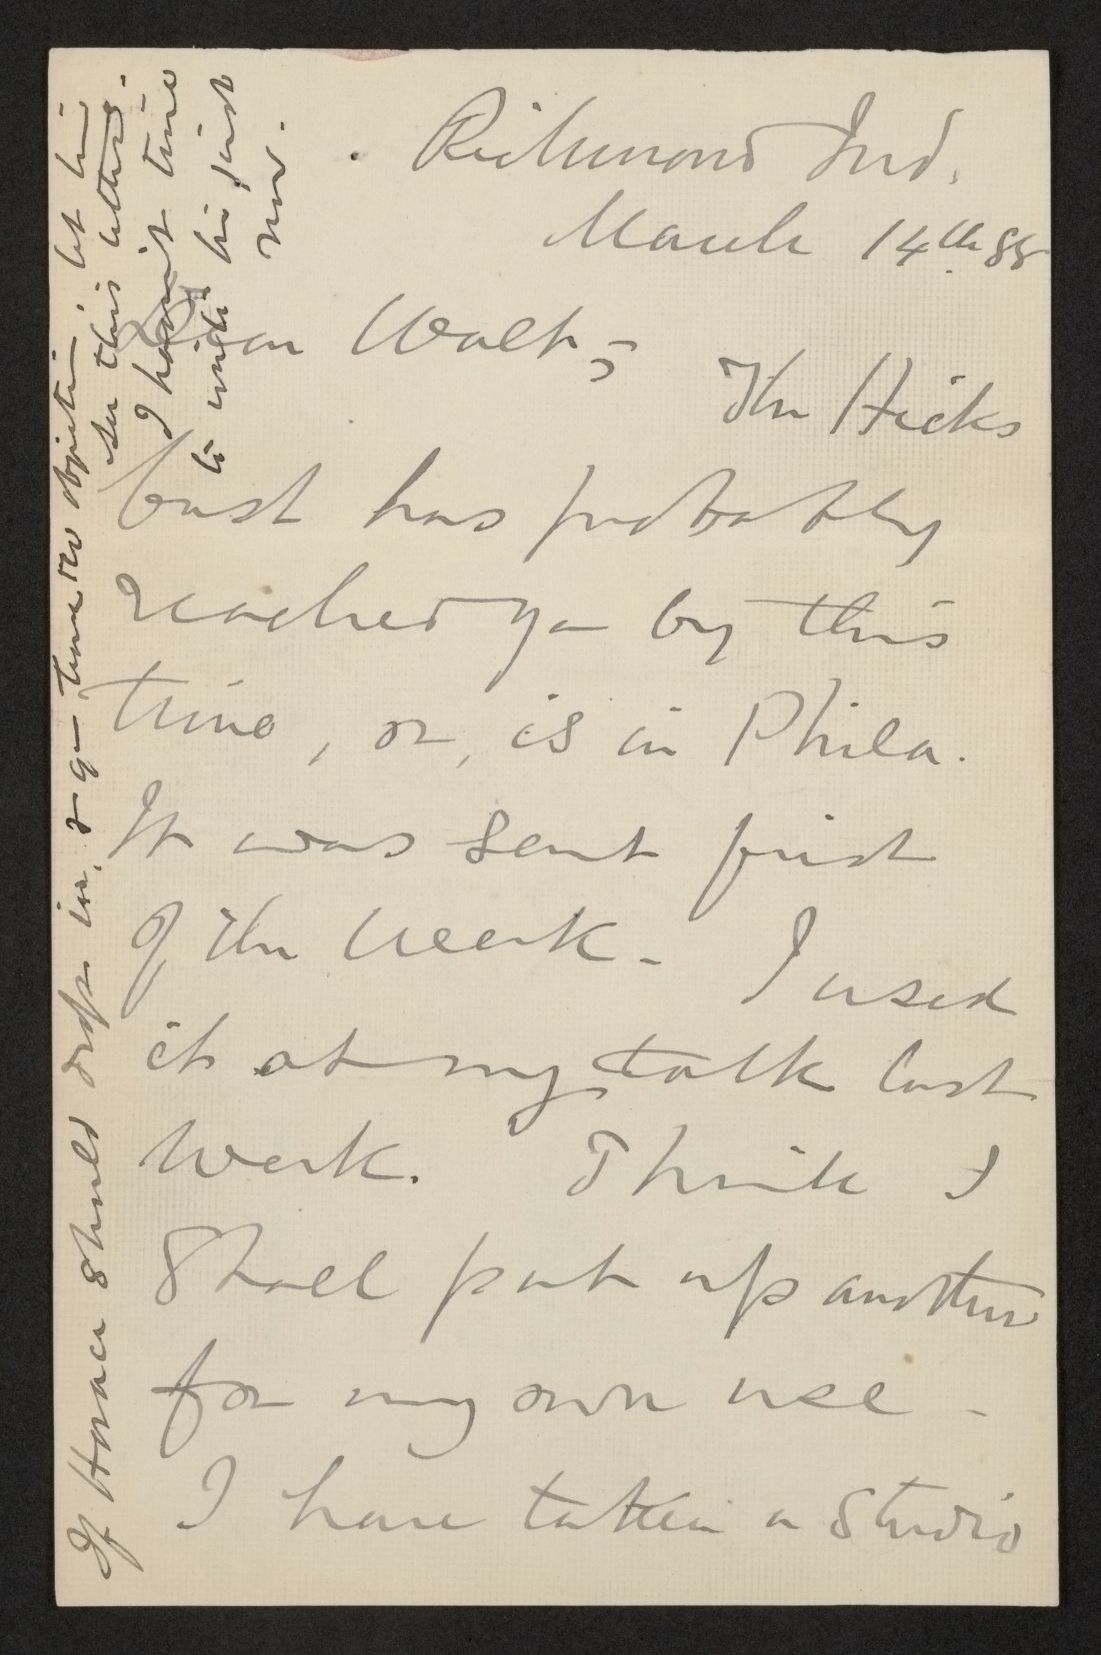 Richmond Ind.
March 14th 88
Dear Walt,
The Hicks
bust has probably
reached you by this
time, or, is in Phila.
It was sent first
of the week. I used
it at my talk last
week. Think I
shall put up another
for my own use.
I have taken a studio
If Horace should drops in, & you have no objection, let him
see this letter.
I haven't time
to write him just
now.